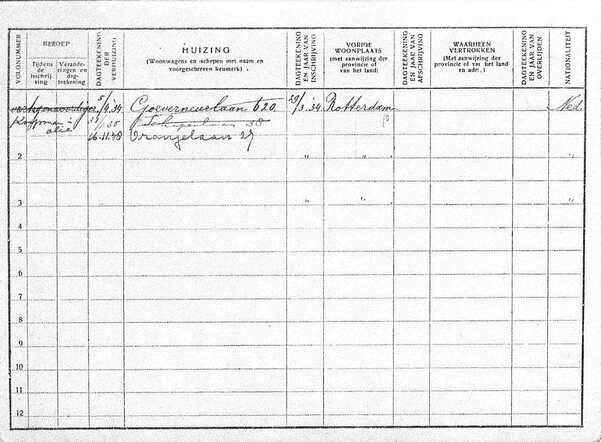 VOLGNUMMER
BEROEP
Tijdens de inschrijving
Veranderingen en dagteekening
DAGTEEKENING DER VERHUIZING
HUIZING
(Woonwagens en schepen met naam en
voorgeschreven kenmerk).
DAGTEEKENING EN JAAR VAN INSCHRIJVING
VORIGE
WOONPLAATS
(met aanwijzing der
provincie of
van het land)
DAGTEEKENING EN JAAR VAN AFSCHRIJVING
WAARHEEN
VERTROKKEN
(Met aanwijzing der
provincie of van het land
en adres.)
DAGTEEKENING EN JAAR VAN OVERLIJDEN
NATIONALITEIT
vertegenwoordiger 5/4.34. Goeverneurlaan 620 29/3.34. Rotterdam Ned
Koopman in
olie
16.11.38 Oranjelaan 27
2 " " "
3 " " "
4
5
6
7
8
9
10
11
12